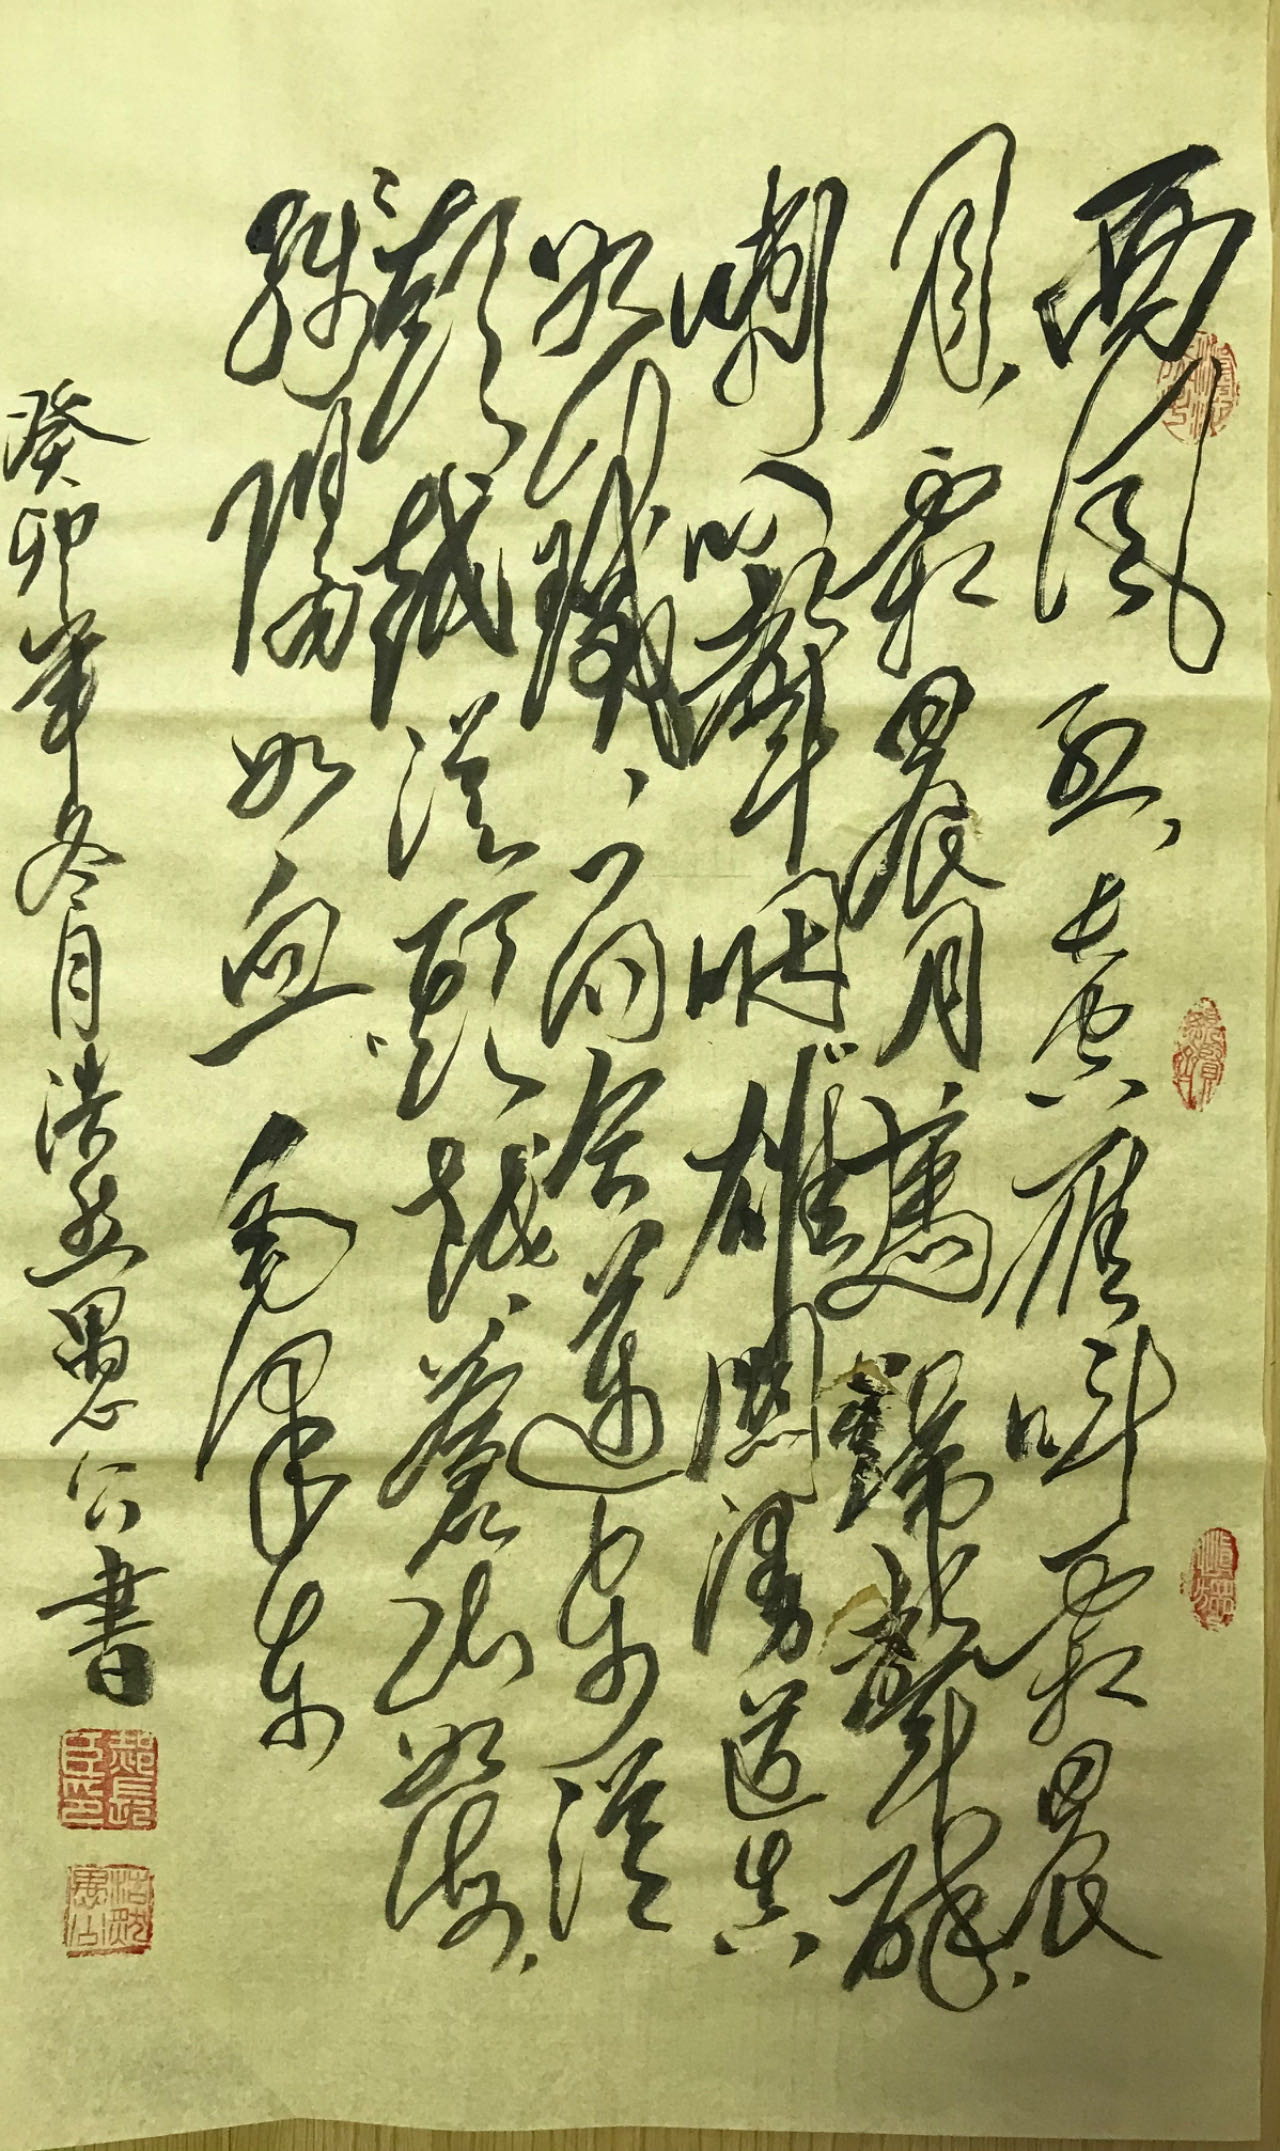 西風烈、長空雁叫霜晨
月、霜晨月、馬蹄聲碎.
喇叭聲咽雄關漫道真
如鐵、而今邁步從
頭越從頭越、蒼山如海.
殘陽如血 毛澤東
癸卯年冬月浩然愚公書
郝長臣印
浩然愚公